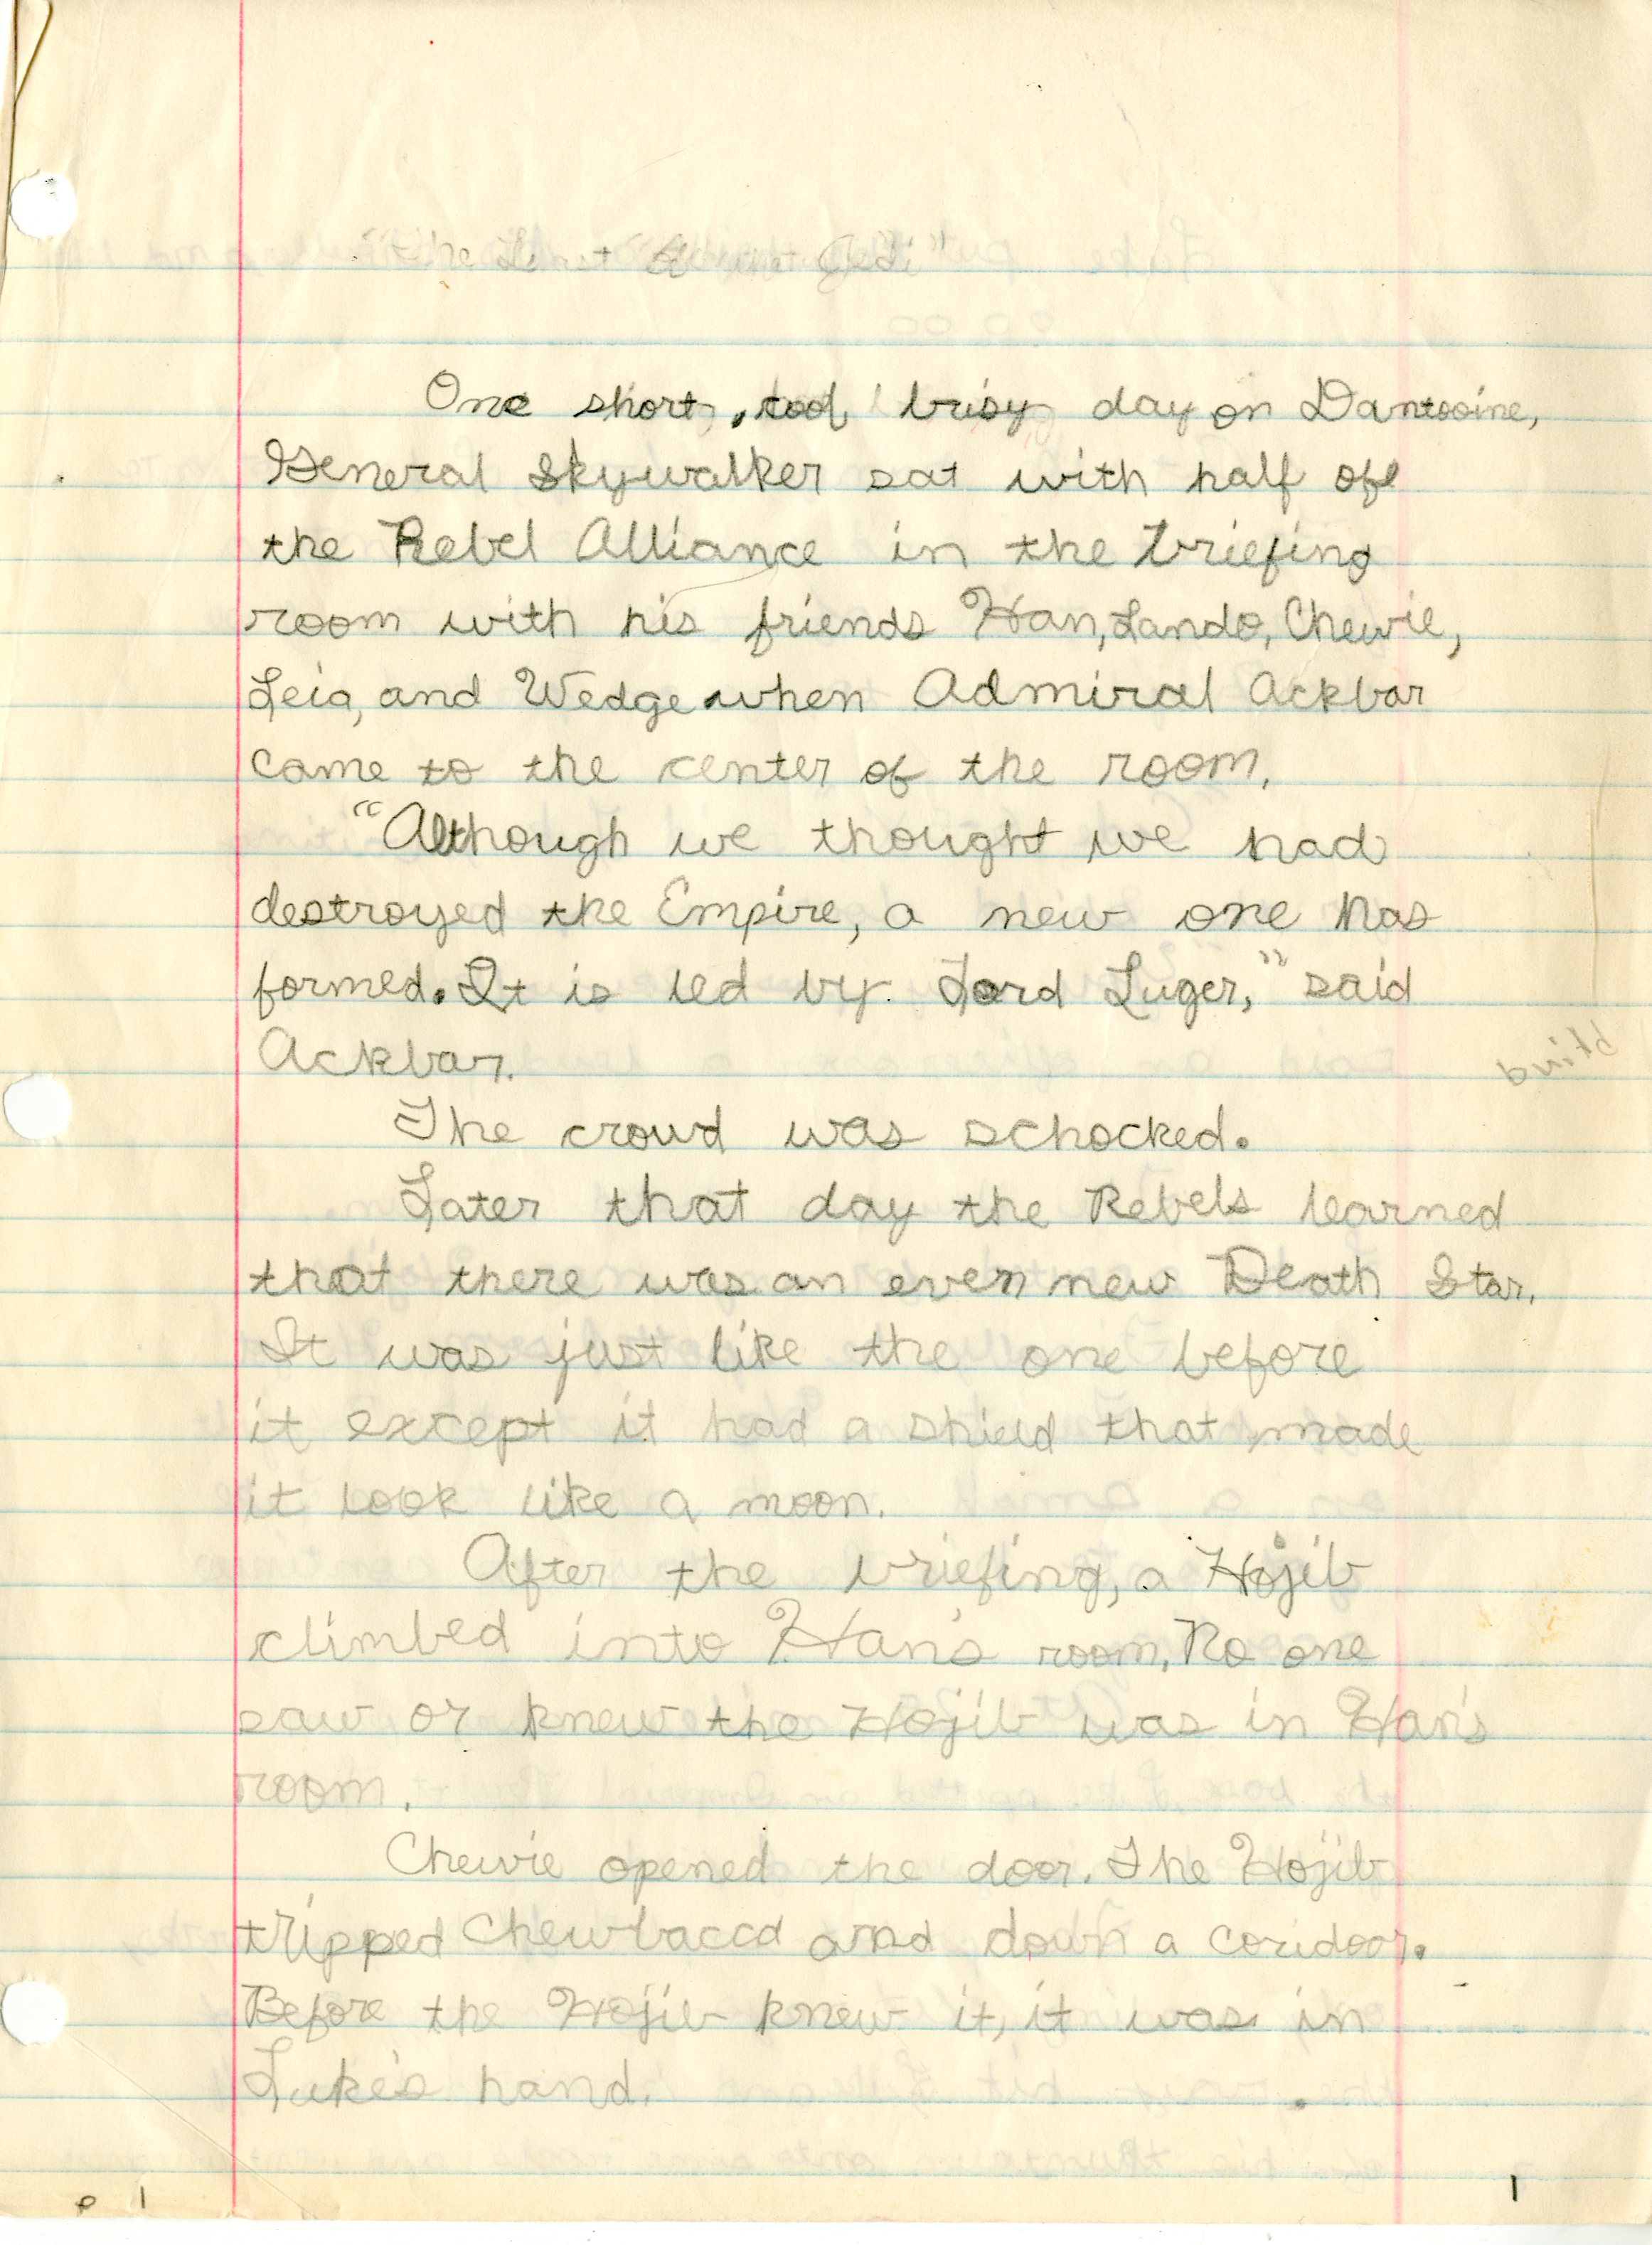 One short, cool, busy day on Dantooine,
General Skywalker sat with half of
the Rebel Alliance in the briefing
room with his friends Han, Lando, Chewie,
Leia, and Wedge when Admiral Ackbar
came to the center of the room.
"Although we thought we had
destroyed the Empire, a new one has
formed. It is led by Lord Luger," said
Ackbar.
The crowd was schocked.
Later that day the Rebels learned
that there was an even new Death Star.
It was just like the one before
it except it had a shield that made
it look like a moon.
After the briefing, a Hojib
climbed into Han's room. No one
saw or knew the Hojib was in Han's
room.
Chewie opened the door. The Hojib
tripped Chewbacca and down a coridoor.
Before the Hojib knew it, it was in
Luke's hand.
p 1
1